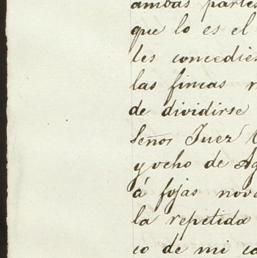 ambas partes
que lo es el
les concedie
las fincas r
de dividirse
Señor Juez
y ocho de Ag
á fojas nov
la repetida
co de mi ca